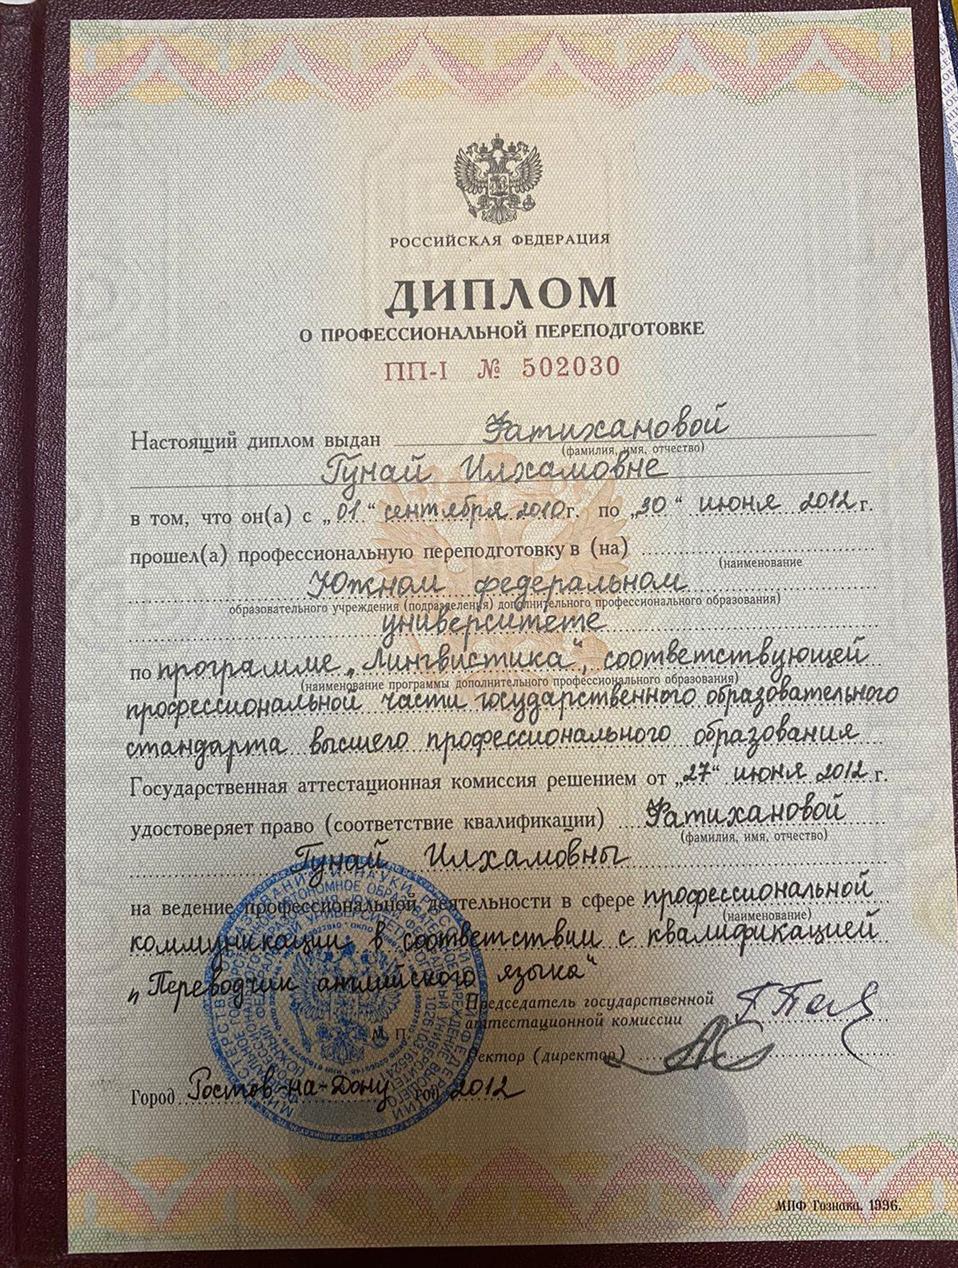 РОССИЙСКАЯ ФЕДЕРАЦИЯ
ДИПЛОМ
О ПРОФЕССИОНАЛЬНОЙ ПЕРЕПОДГОТОВКЕ
ПП-I № 502030
Настоящий диплом выдан Фатихановой
(фамилия, имя, отчество)
Гунай Илхамовне
в том, что он(а) с „01“ сентября 2010г. по „30“ июня 2012г.
прошел(а) профессиональную переподготовку в (на)
(наименование
Южном федеральном
образовательного учреждения (подразделения) дополнительного профессионального образования)
университете
по программе „Лингвистика“, соответствующей
(наименование программы дополнительного профессионального образования)
профессиональной части государственного образовательного
стандарта высшего профессионального образования
Государственная аттестационная комиссия решением от „27“ июня 2012г.
удостоверяет право (соответствие квалификации) Фатихановой
(фамилия, имя, отчество)
Гунай Илхамовны
на ведение профессиональной деятельности в сфере профессиональной
(наименование)
коммуникации в соответствии с квалификацией
„Переводчик английского языка“
Председатель государственной
аттестационной комиссии
М. П.
Ректор (директор)
Город Ростов-на-Дону год 2012
МПФ Гознака. 1996.